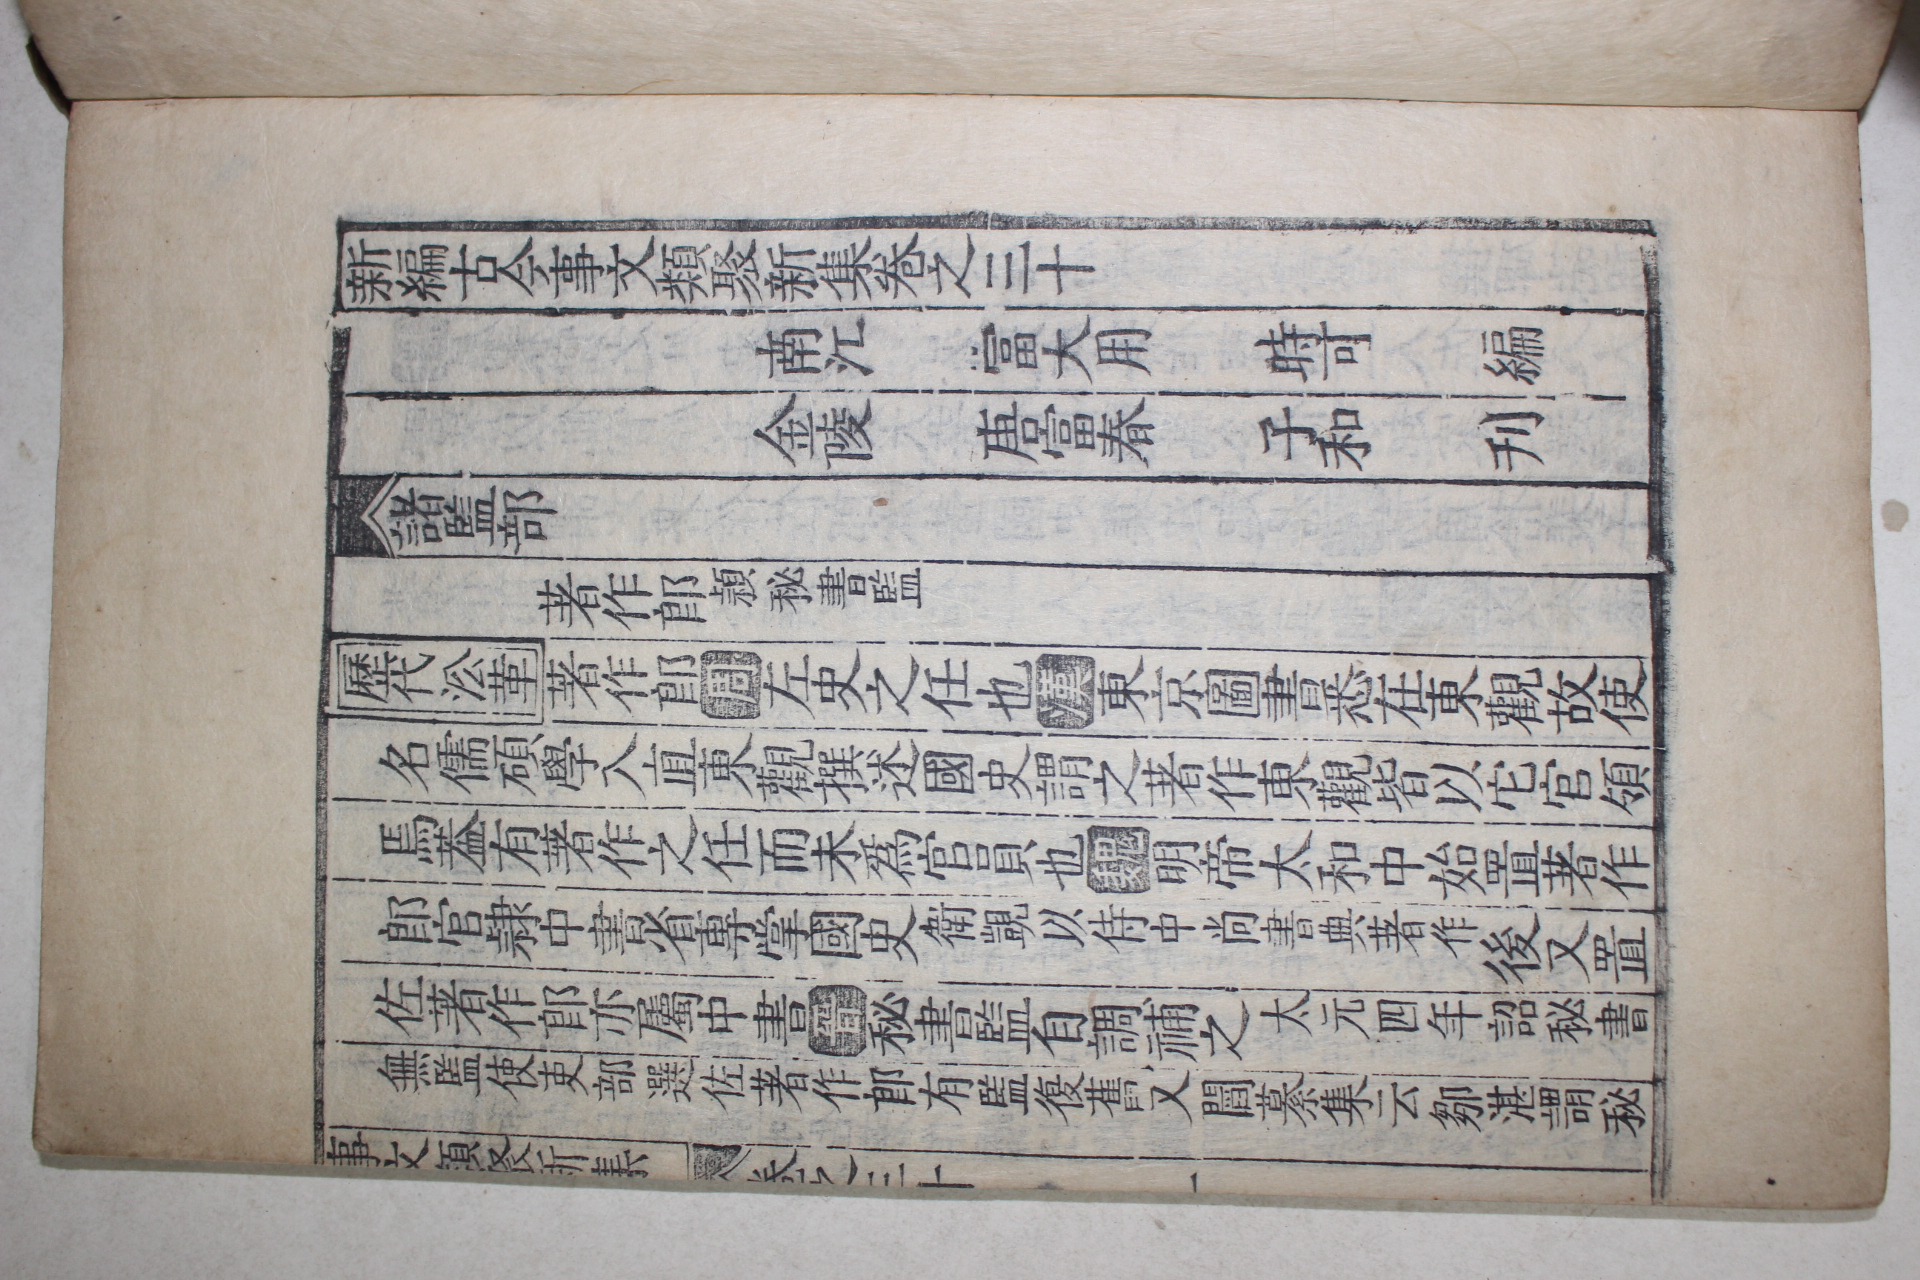 新編古今事文類聚新集卷之三十
南江 富大用 時可 編
金陵 唐富春 子和 刋
諸監部
著作郎 類秘書監
歷代沿革 著作郎周左史之任也漢東京圖書悉在東觀故使
名儒碩學入直東觀撰述國史謂之著作東觀皆以它官領
焉葢有著作之任而未爲官員也魏明帝太和中始置著作
郎官隸中書省專掌國史衛覬以侍中尚書典著作後又置
佐著作郎亦屬中書晉秘書監自調補之太元四年詔秘書
無監使吏部選佐著作郎有監復舊又閻纂集云鄒湛謂秘
事文類聚新集 卷之三十 一